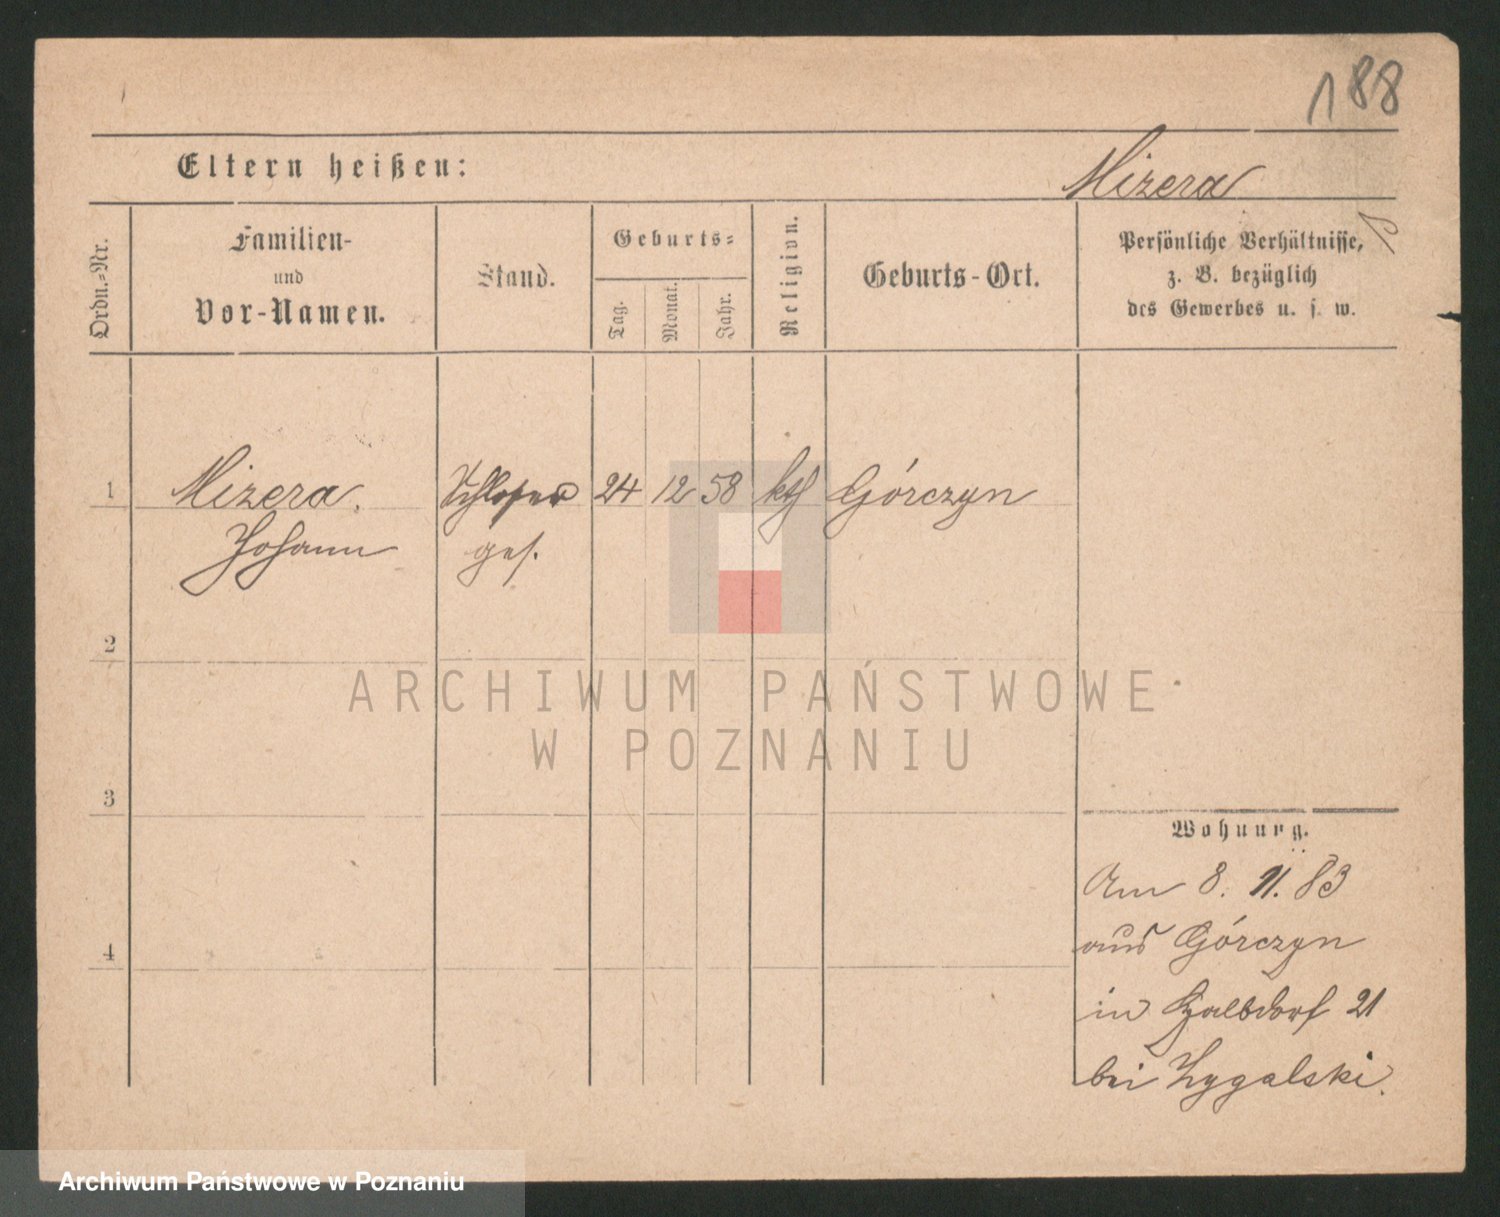 188
Eltern heißen:
Mizera
Ordn.-Nr.
Familien-
und
Vor-Namen.
Stand.
Geburts-
Tag.
Monat.
Jahr.
Religion.
Geburts-Ort.
Persönliche Verhältnisse,
z. B. bezüglich
des Gewerbes u. s. w.
1
Mizera Schlosser 24 12 58 kth Górczyn
Johann ges.
2
3
4
Wohnung.
Am 8. 11. 83
aus Górczyn
in Halbdorf 21
bei Zygalski.
ARCHIWUM PAŃSTWOWE
W POZNANIU
Archiwum Państwowe w Poznaniu